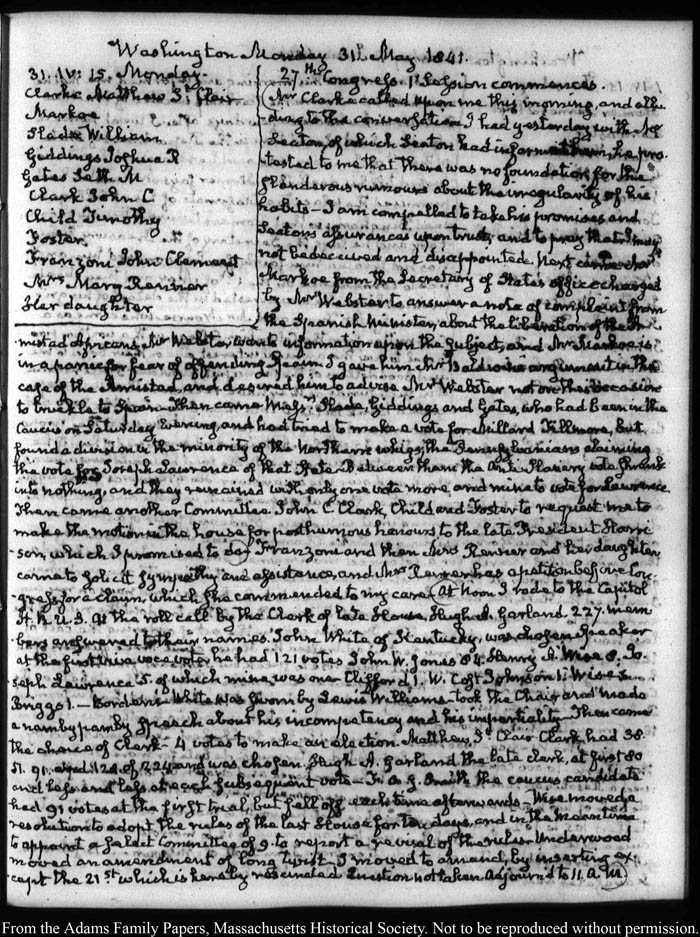 Washington Monday 31st May 1841.
31. IV: 15. Monday.
Clarke Matthew St Clair
Markoe
Slade William
Giddings Joshua R
Gates Seth M
Clark John C
Child Timothy
Foster
Franzoni John Clement
Mrs Mary Renner
Her daughter
27th Congress. 1st Session commences.
Mr Clarke called upon me this morning, and allu-
ding to the conversation I had yesterday with Mr
Seaton, of which Seaton had informed him, he pro-
tested to me that there was no foundation for the
slanderous rumours about the irregularity of his
habits – I am compelled to take his promises and
Seaton's assurances upon trust, and to pray that I may
not be deceived and disappointed. Next came Mr
Markoe from the Secretary of State's office charged
by Mr Webster to answer a note of complaint from
the Spanish Minister, about the liberation of the A-
mistad Africans. Mr Webster wants information upon the subject, and Mr Markoe is
in a panic for fear of offending Spain. I gave him Mr Baldwin's argument in the
case of the Amistad, and desired him to advise Mr Webster not on this occasion
to truckle to Spain. Then came Messrs Slade, Giddings and Gates, who had been in the
Caucus on Saturday Evening, and had tried to make a vote for Millard Fillmore, but
found a division in the minority of the Northern whigs, the Pennsylvanians claiming
the vote for Joseph Lawrence of that State. Between them the Anti-Slavery vote shrunk
into nothing, and they remained with only one vote more, and mine to vote for Lawrence.
Then came another Committee. John C. Clark, Child and Foster to request me to
make the motion in the house for posthumous honours to the late President Harri-
son, which I promised to do. Franzoni and then Mrs Renner and her daughter,
came to solicit sympathy and assistance, and Mrs Renner has a petition before Con-
gress for a claim, which she commended to my care. At Noon I rode to the Capitol
H. R. U. S. At the roll call by the Clerk of late House, Hugh A. Garland. 227. mem-
bers answered to their names. John White of Kentucky, was chosen Speaker
at the first viva voce vote, he had 121 votes John W. Jones 84. Henry A. Wise 8. Jo-
seph Lawrence 5. of which mine was one Clifford 1. W. Cost Johnson 1. Wise's
Briggs 1. – White was sworn by Lewis Williams – took the Chair and made
a namby pamby speech about his incompetency and his impartiality – Then came
the choice of Clerk – 4 votes to make an election. Matthew St Clair Clark, had 38
51. 91. and 128. of 224 and was chosen. Hugh A. Garland the late clerk, at first 80
and less and less at each subsequent vote – Fr. O. J. Smith the caucus candidate
had 91 votes at the first trial, but fell off each time afterwards – Wise moved a
resolution to adopt the rules of the last House for ten days, and in the mean time
to appoint a Select Committee of 9. to report a revisal of the rules – Underwood
moved an amendment of long twist – I moved to amend, by inserting ex-
cept the 21st which is hereby rescinded Question not taken Adjourn'd to 11. A.M.
From the Adams Family Papers, Massachusetts Historical Society. Not to be reproduced without permission.